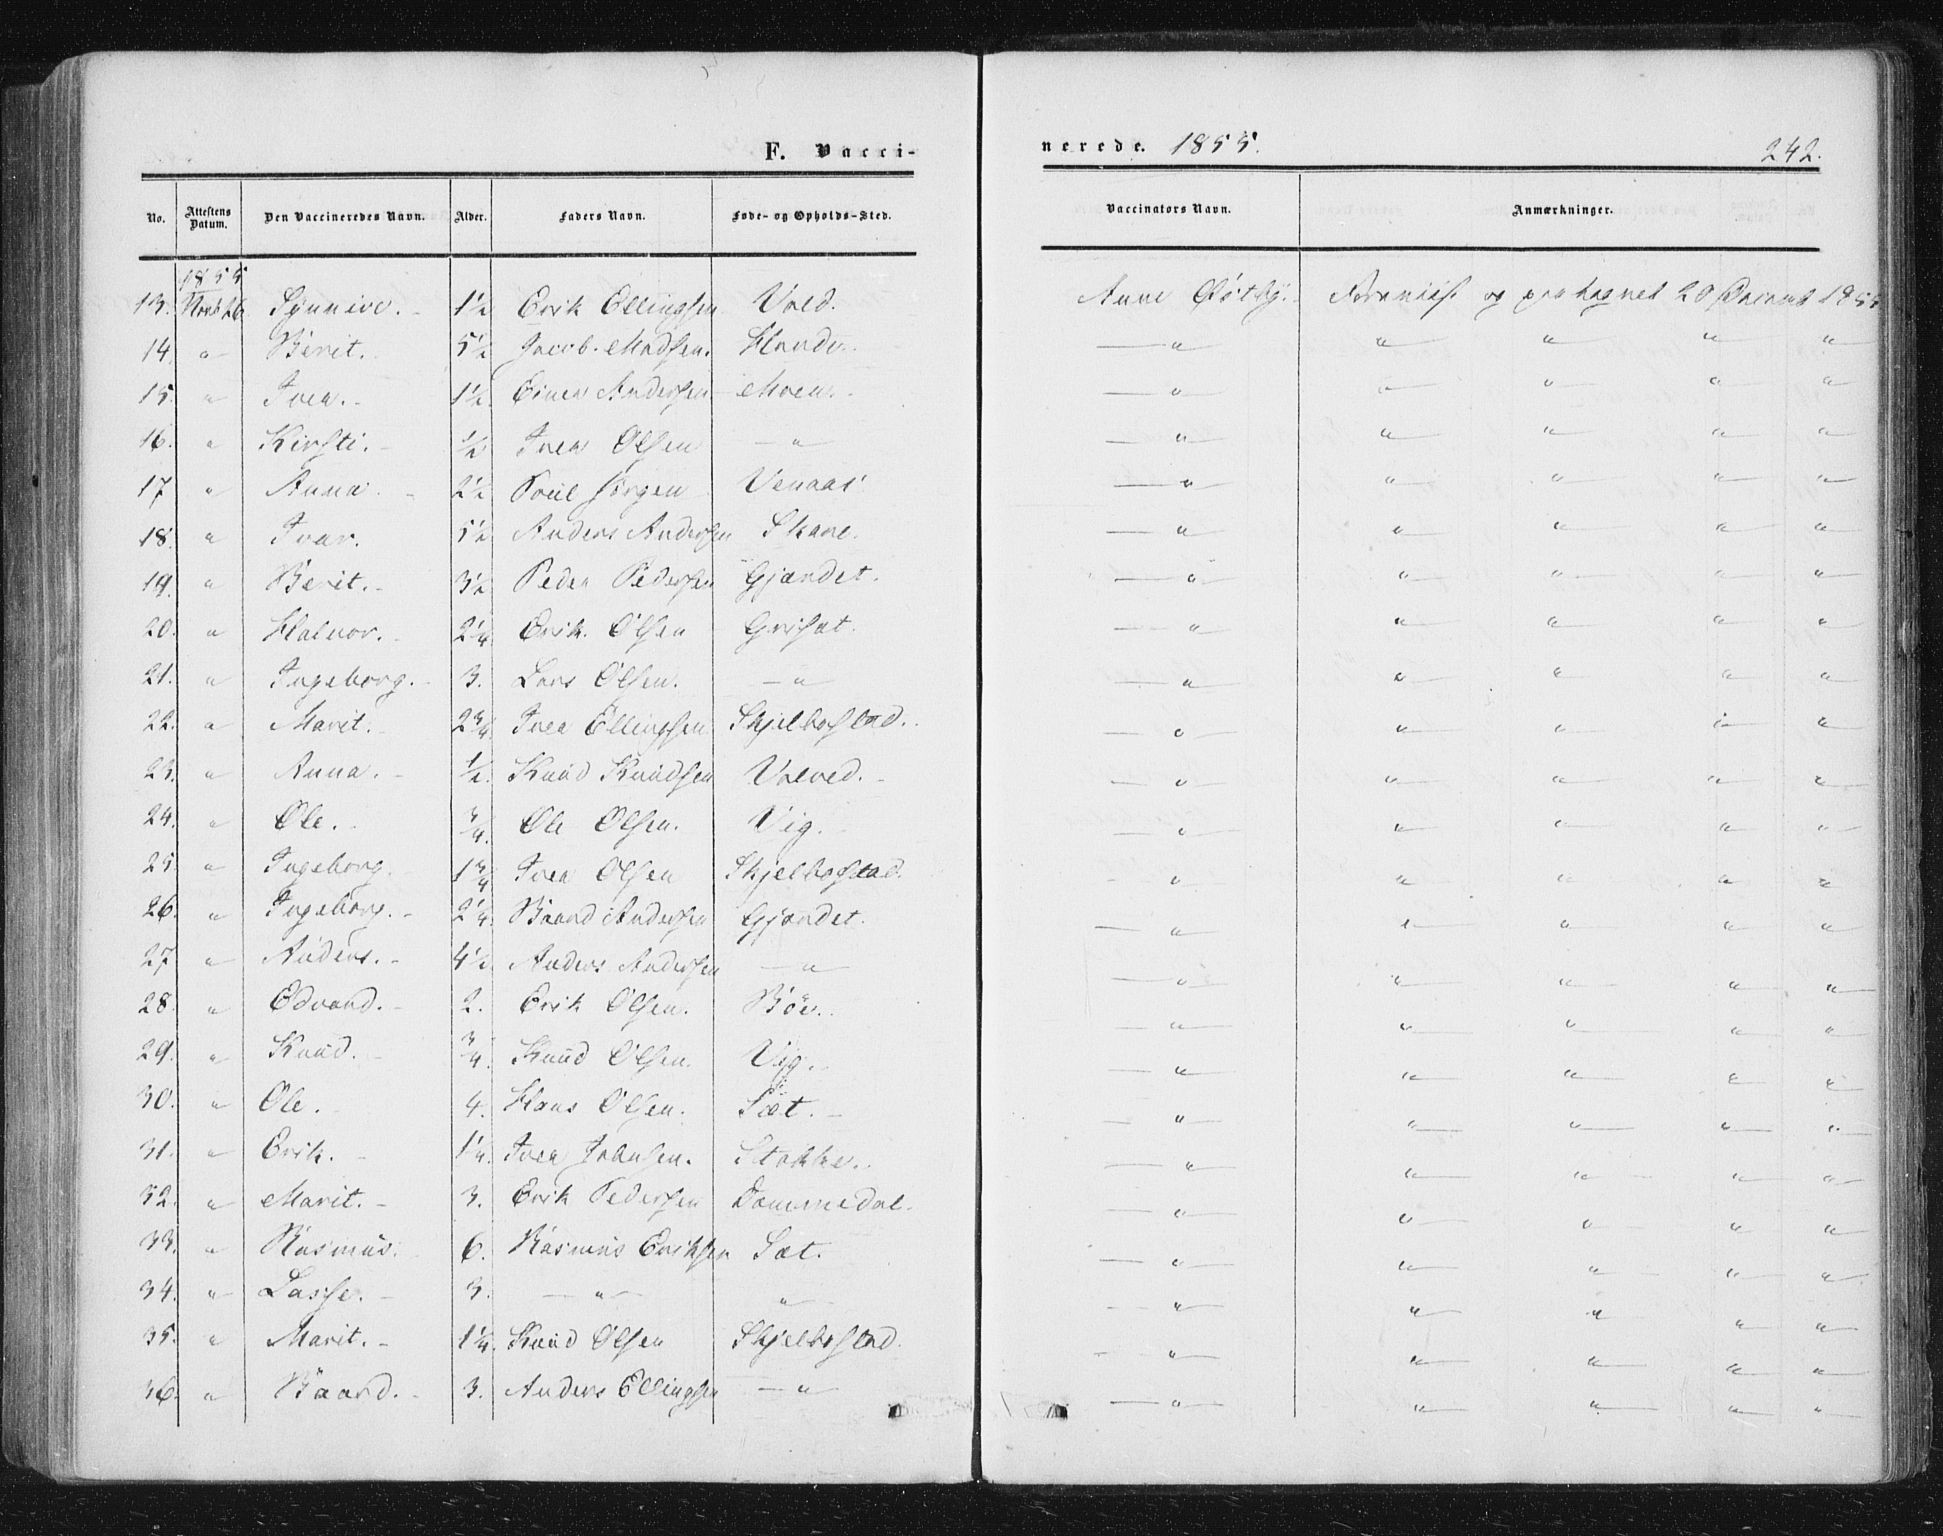 F. Vacci-
nerede. 1855.
242.
No. Attestens Datum. Den Vaccineredes Navn. Alder. Faders Navn. Føde- og Opholds-Sted. Vaccinators Navn. Anmærkninger.
1855
13. Novb 26 Synnive. 1½ Erik Ellingsen Vold. Anne Østby. og 20 1855
14. " Berit. 5½ Jacob Madsen. — " — " " " "
15. " Iver. 1½ Einer Andersen Moen. — " — " " " "
16. " Kirsti. ½ Iver Olsen — " — — " — " " " "
17 " Anna. 2½ Poul Jørgen Venaas — " — " " " "
18. " Ivar. 5½ Anders Andersen Skare. — " — " " " "
19. " Berit. 3½ Peder Pedersen Gjendet. — " — " " " "
20. " Halvor. 2¼ Erik Olsen Griset. — " — " " " "
21. " Ingeborg. 3. Lars Olsen. — " — — " — " " " "
22. " Marit. 2¾ Iver Ellingsen Skjelbostad. — " — " " " "
23. " Anna. ½. Knud Knudsen — " — " " " "
24. " Ole. ¾. Ole Olsen. Vig. — " — " " " "
25. " Ingeborg. 1¾ Iver Olsen Skjelbostad. — " — " " " "
26. " Ingeborg. 2¼. Baard Andersen Gjændet. — " — " " " "
27 " Anders. 4½ Anders Andersen — " — — " — " " " "
28. " Edvard. 2. Erik Olsen. Bøe. — " — " " " "
29. " Knud. ¾. Knud Olsen. Vig. — " — " " " "
30. " Ole. 4. Hans Olsen. Sæt. — " — " " " "
31. " Erik. 1¼. Iver Johnsen. Stokke. — " — " " " "
32. " Marit. 3. Erik Pedersen Dommedal. — " — " " " "
33. " Rasmus. 6. Rasmus Eriksen Sæt. — " — " " " "
34. " Lasse. 3. — " — " — " — " " " "
35. " Marit. 1¼. Knud Olsen Skjelbostad. — " — " " " "
36. " Baard. 3. Anders Ellingsen — " — — " — " " " "